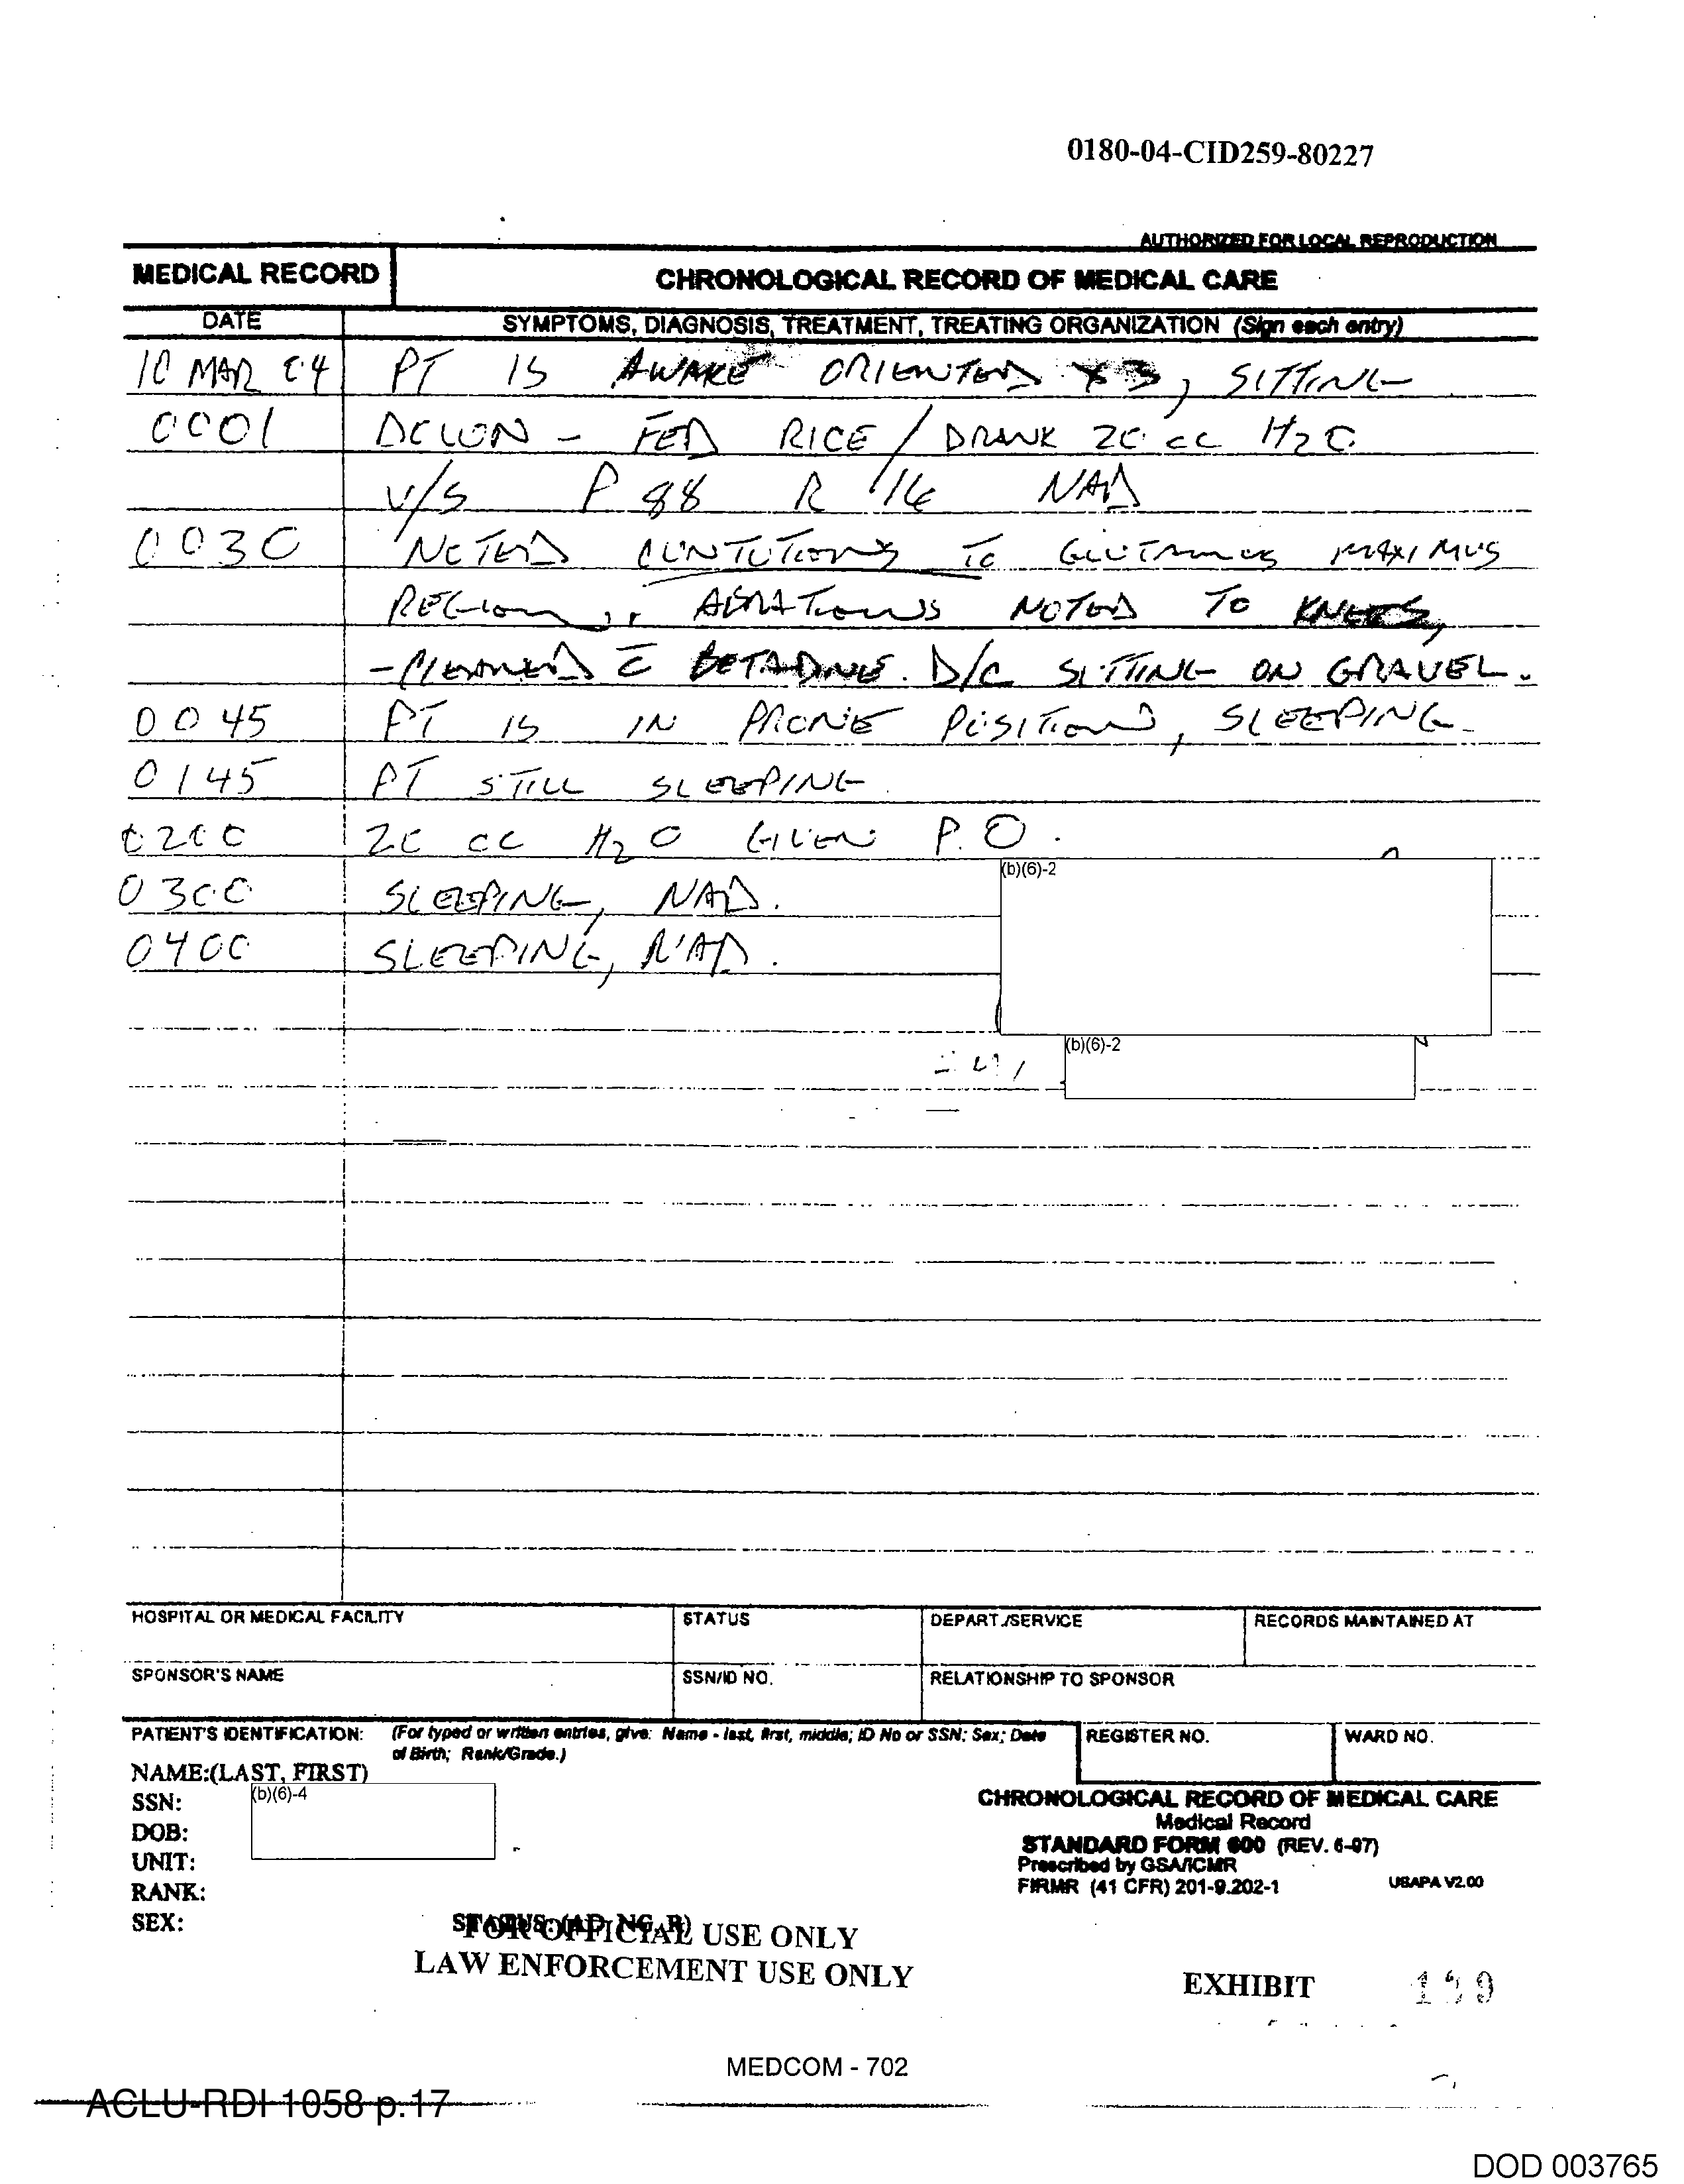 0180-04-CID259-80227
AUTHORIZED FOR LOCAL REPRODUCTION
MEDICAL RECORD
CHRONOLOGICAL RECORD OF MEDICAL CARE
DATE SYMPTOMS, DIAGNOSIS, TREATMENT, TREATING ORGANIZATION (Sign each entry)
10 MAR 04 PT IS AWAKE ORIENTED X 3, SITTING
0001 DOWN - FED RICE / DRANK 20 cc H2O
V/S P 88 R 16 NAD
0030 NOTED CONTUTIONS TO GLUTAMUS MAXIMUS
REGION, ABRATIONS NOTED TO KNEES,
- CLEANED C̄ BETADINE. D/C SITTING ON GRAVEL.
0045 PT IS IN PRONE POSITION, SLEEPING
0145 PT STILL SLEEPING
0200 20 CC H2O GIVEN P.O.
0300 SLEEPING, NAD.
0400 SLEEPING, NAD.
(b)(6)-2
(b)(6)-2
HOSPITAL OR MEDICAL FACILITY STATUS DEPART./SERVICE RECORDS MAINTAINED AT
SPONSOR'S NAME SSN/ID NO. RELATIONSHIP TO SPONSOR
PATIENT'S IDENTIFICATION: (For typed or written entries, give: Name - last, first, middle; ID No or SSN; Sex; Date of Birth; Rank/Grade.)
REGISTER NO. WARD NO.
NAME:(LAST, FIRST)
SSN: (b)(6)-4
DOB:
UNIT:
RANK:
SEX: STATUS: (AD, NG, R)
CHRONOLOGICAL RECORD OF MEDICAL CARE
Medical Record
STANDARD FORM 600 (REV. 6-97)
Prescribed by GSA/ICMR
FIRMR (41 CFR) 201-9.202-1 USAPA V2.00
FOR OFFICIAL USE ONLY
LAW ENFORCEMENT USE ONLY
EXHIBIT
MEDCOM - 702
ACLU-RDI 1058 p.17
DOD 003765